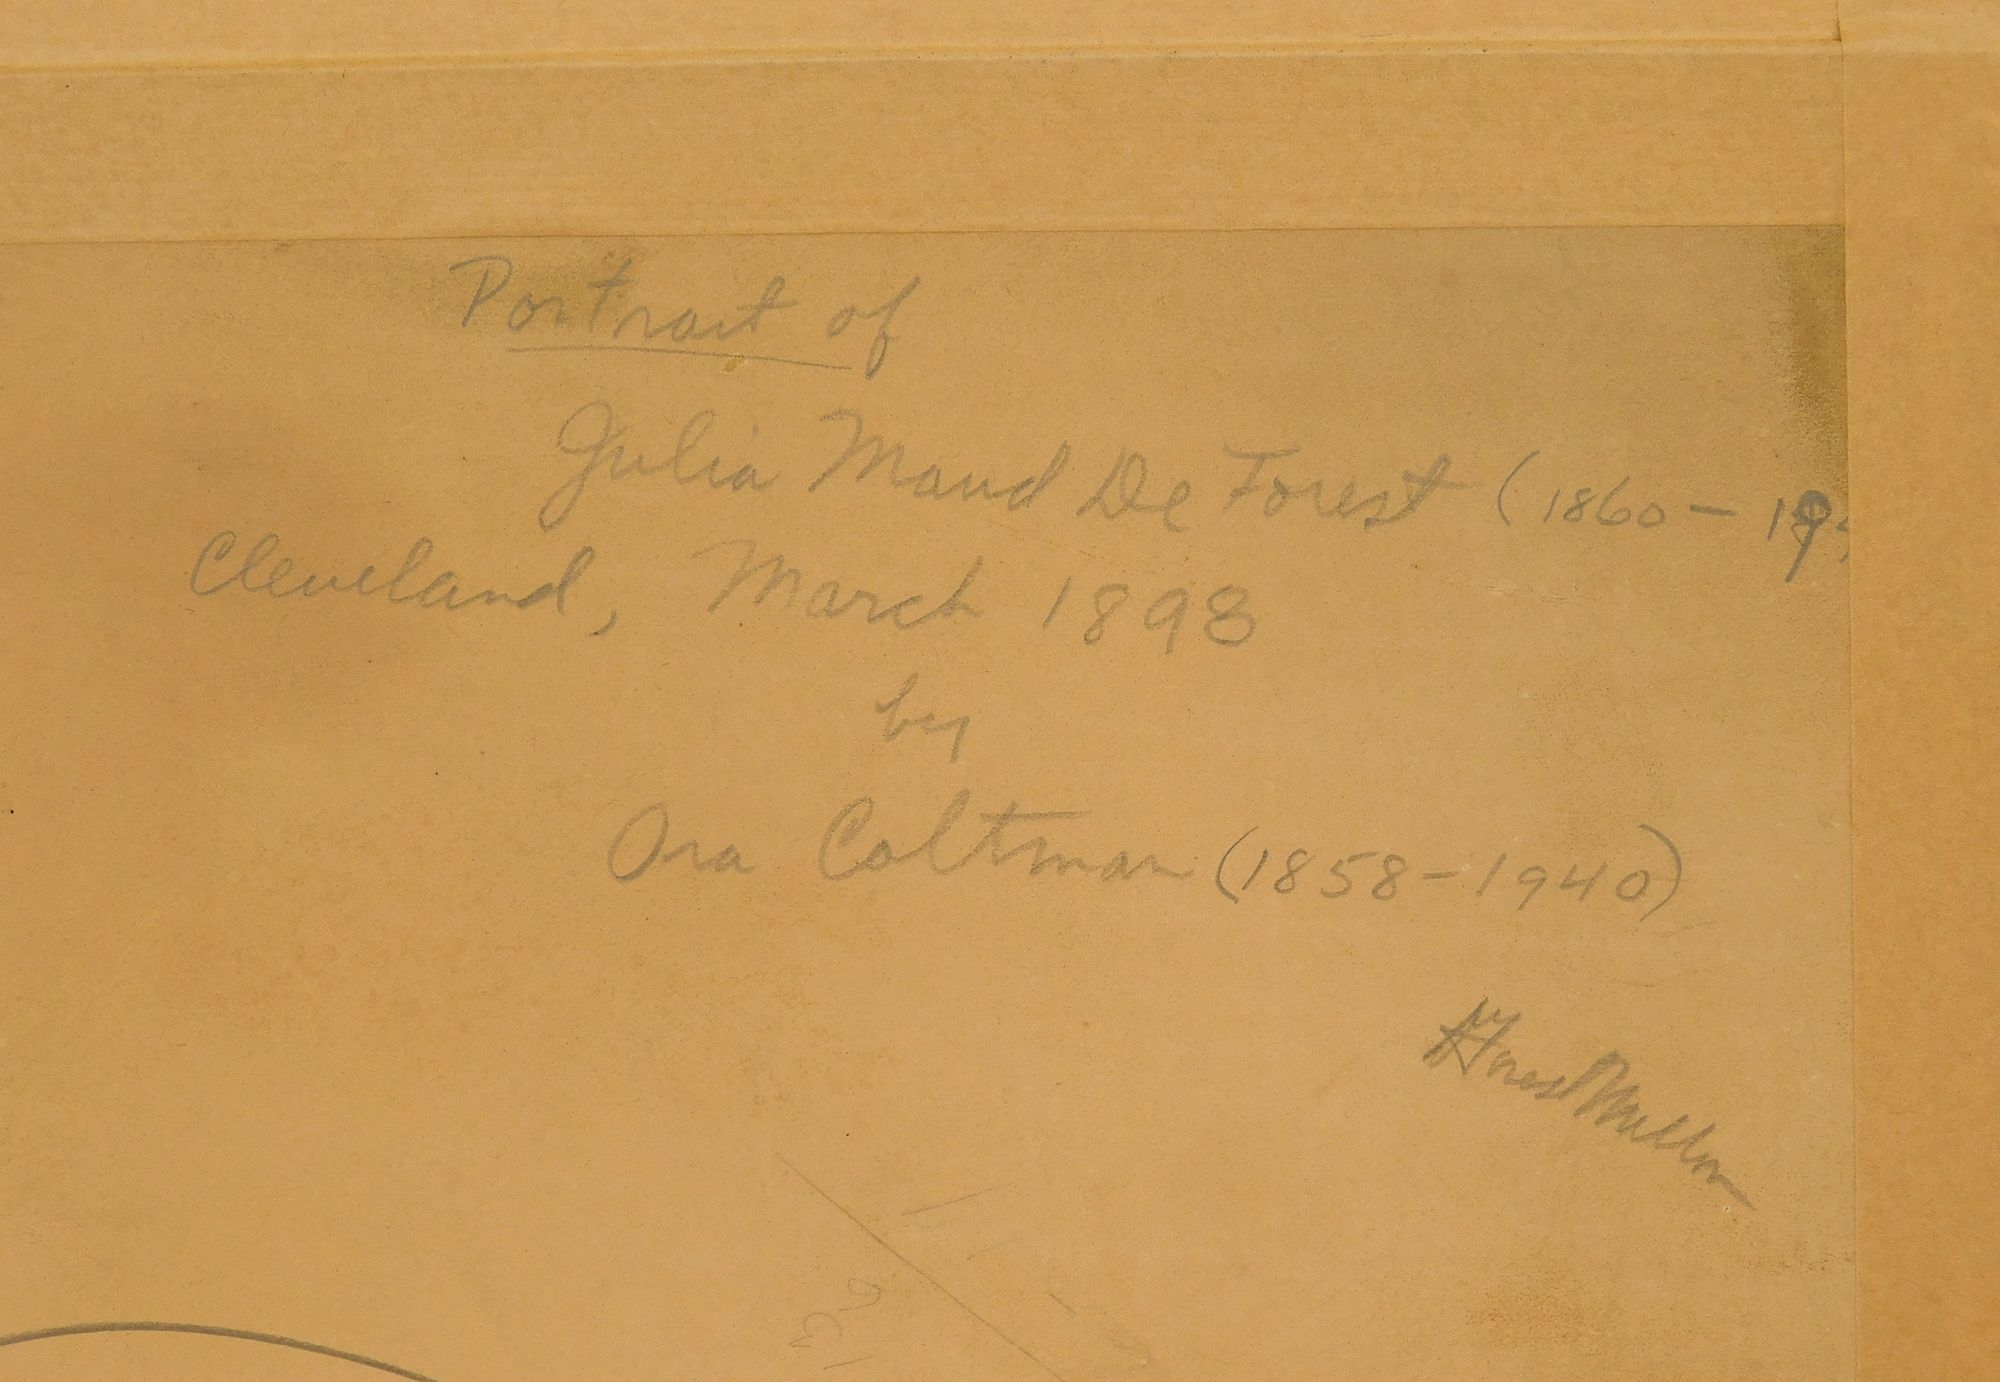 Portrait of
Julia Maud De Forest (1860 - 19
Cleveland, March 1898
by
Ora Coltman (1858-1940)